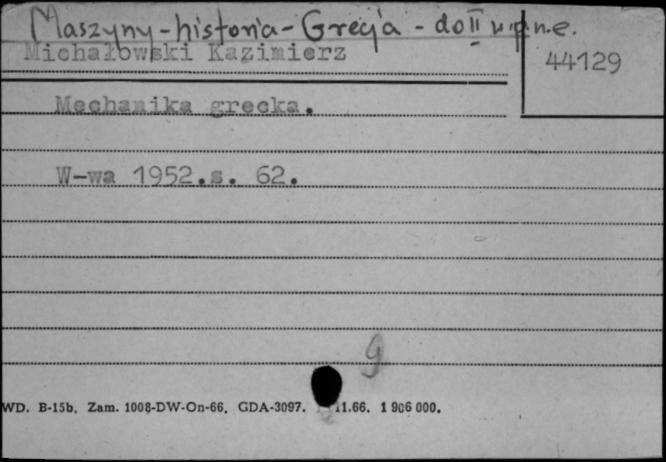 Maszyny - historia - Grecja - do II w. p.n.e.
Michałowski Kazimierz
44129
Mechanika grecka.
W-wa 1952.s. 62.
9
WD. B-15b. Zam. 1008-DW-On-66. GDA-3097. 11.66. 1 906 000.